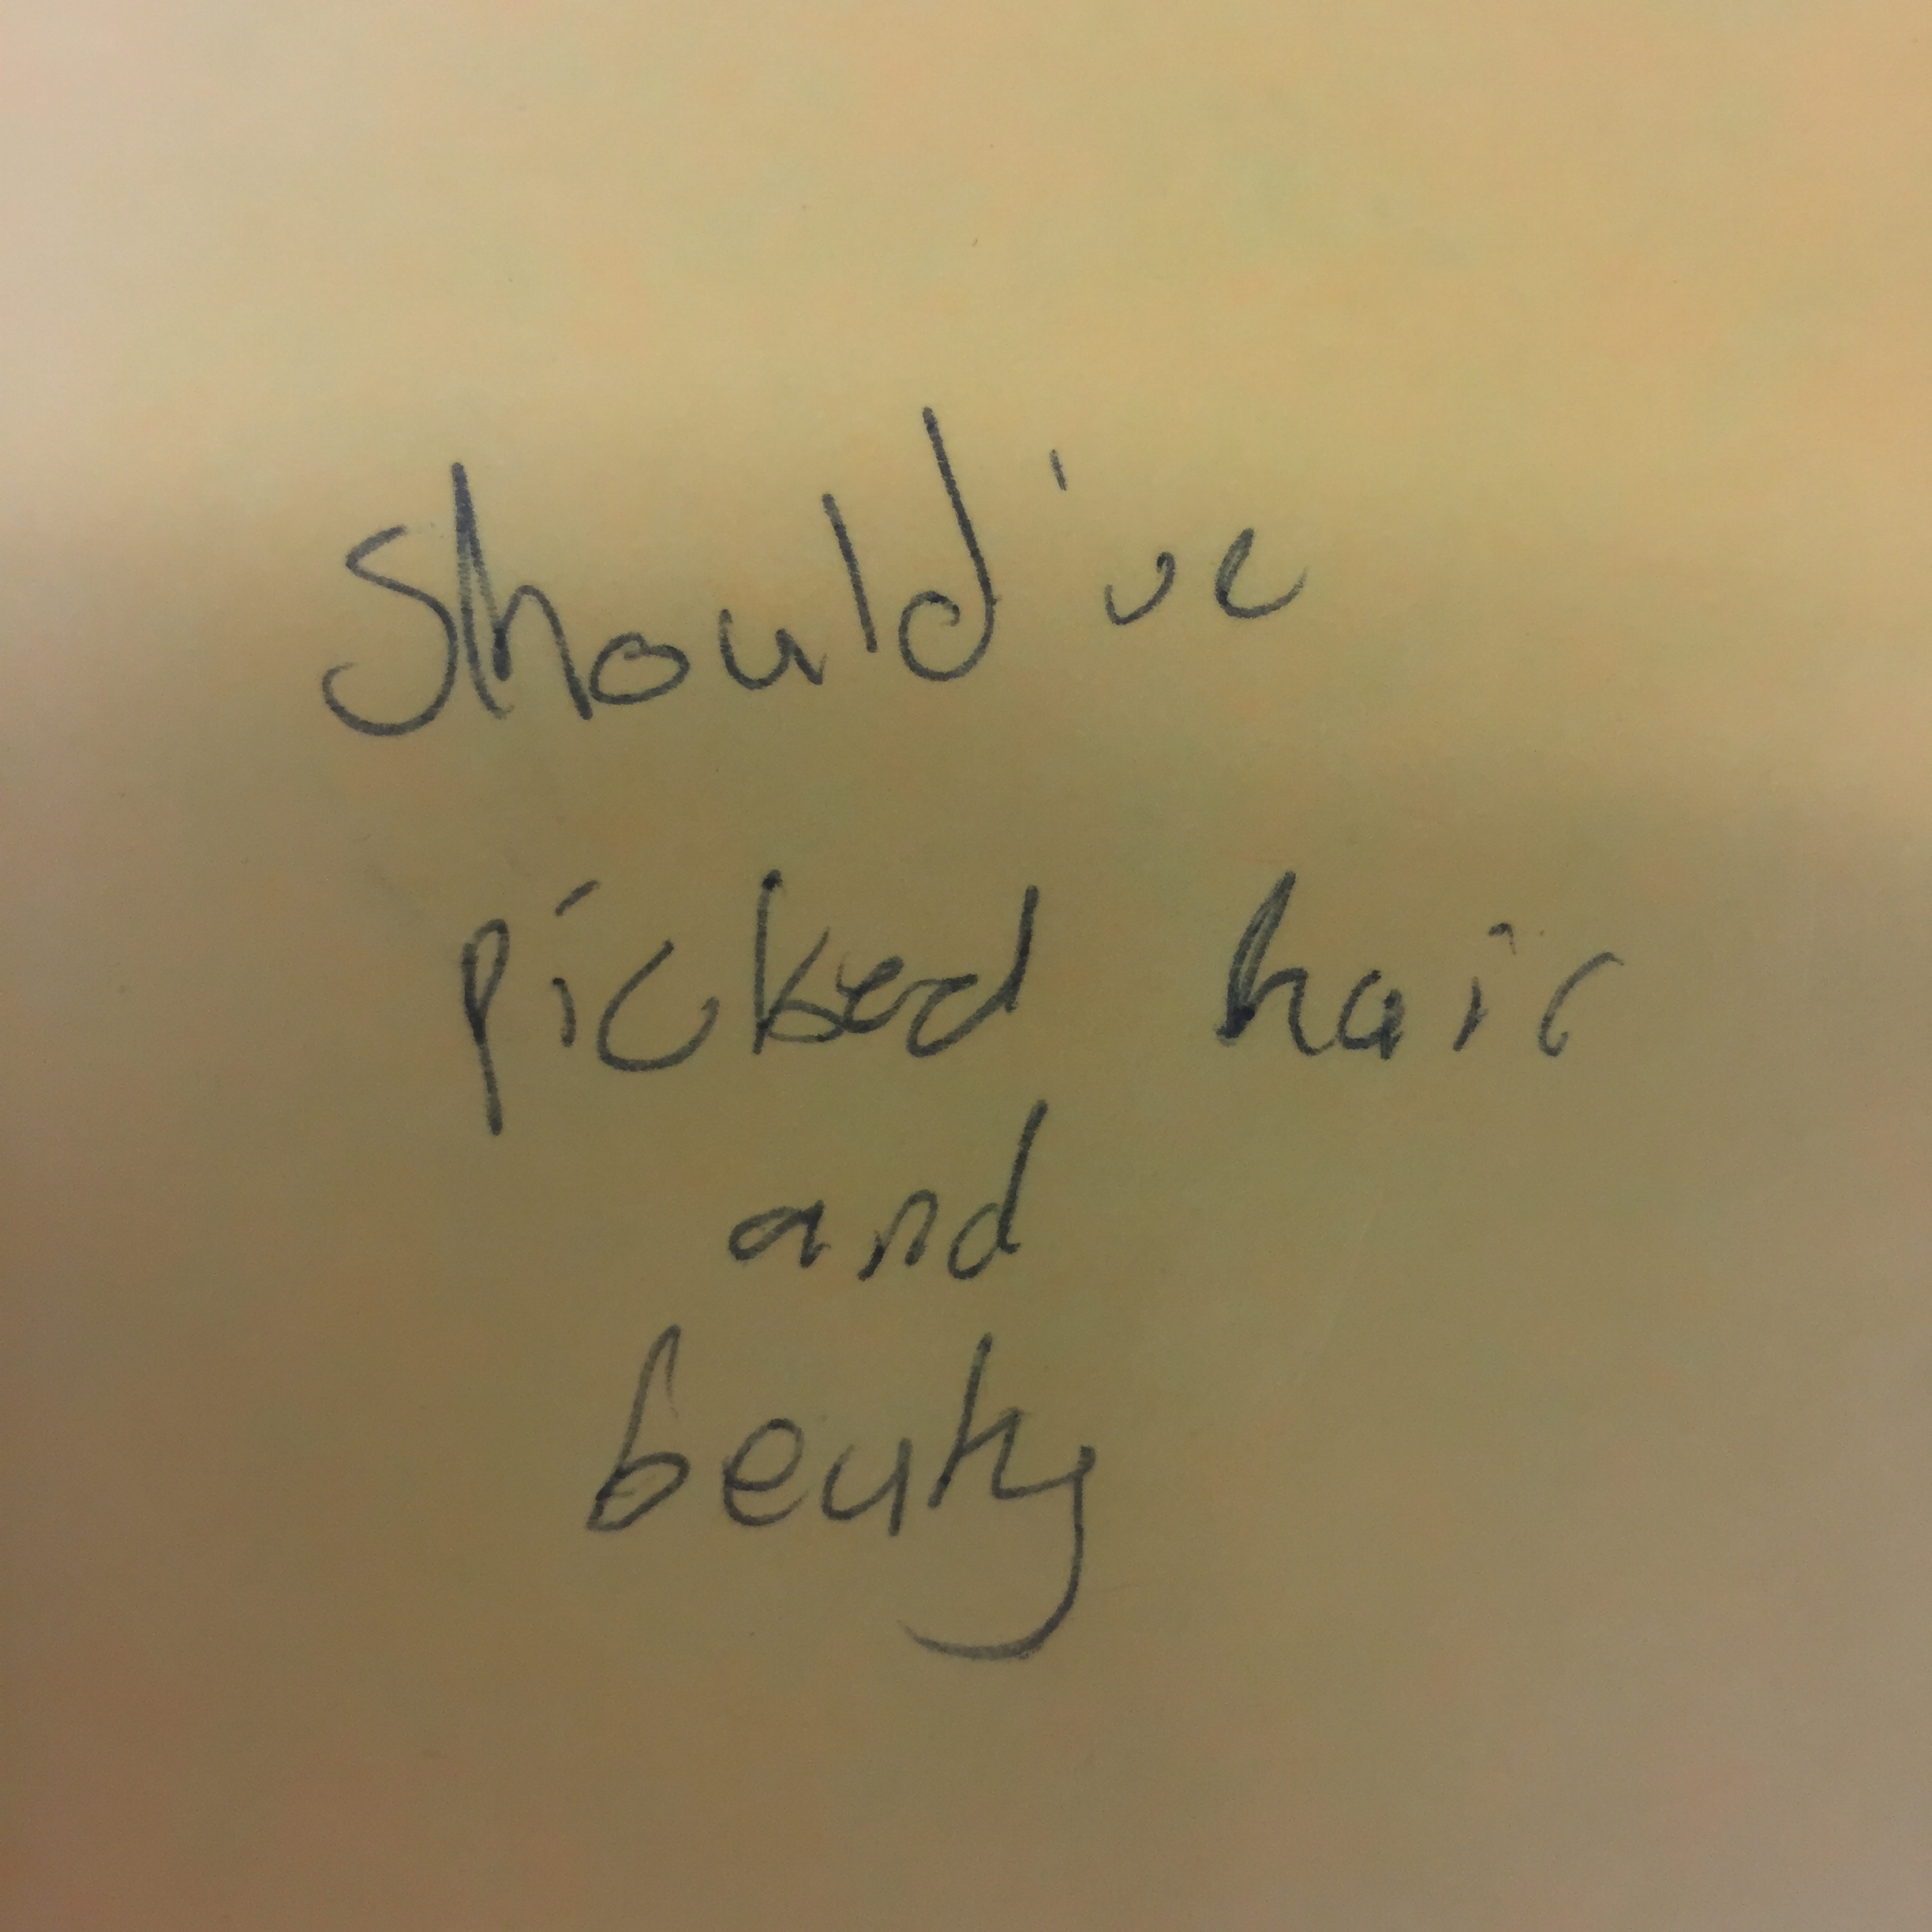 Should've
picked hair
and
beuty